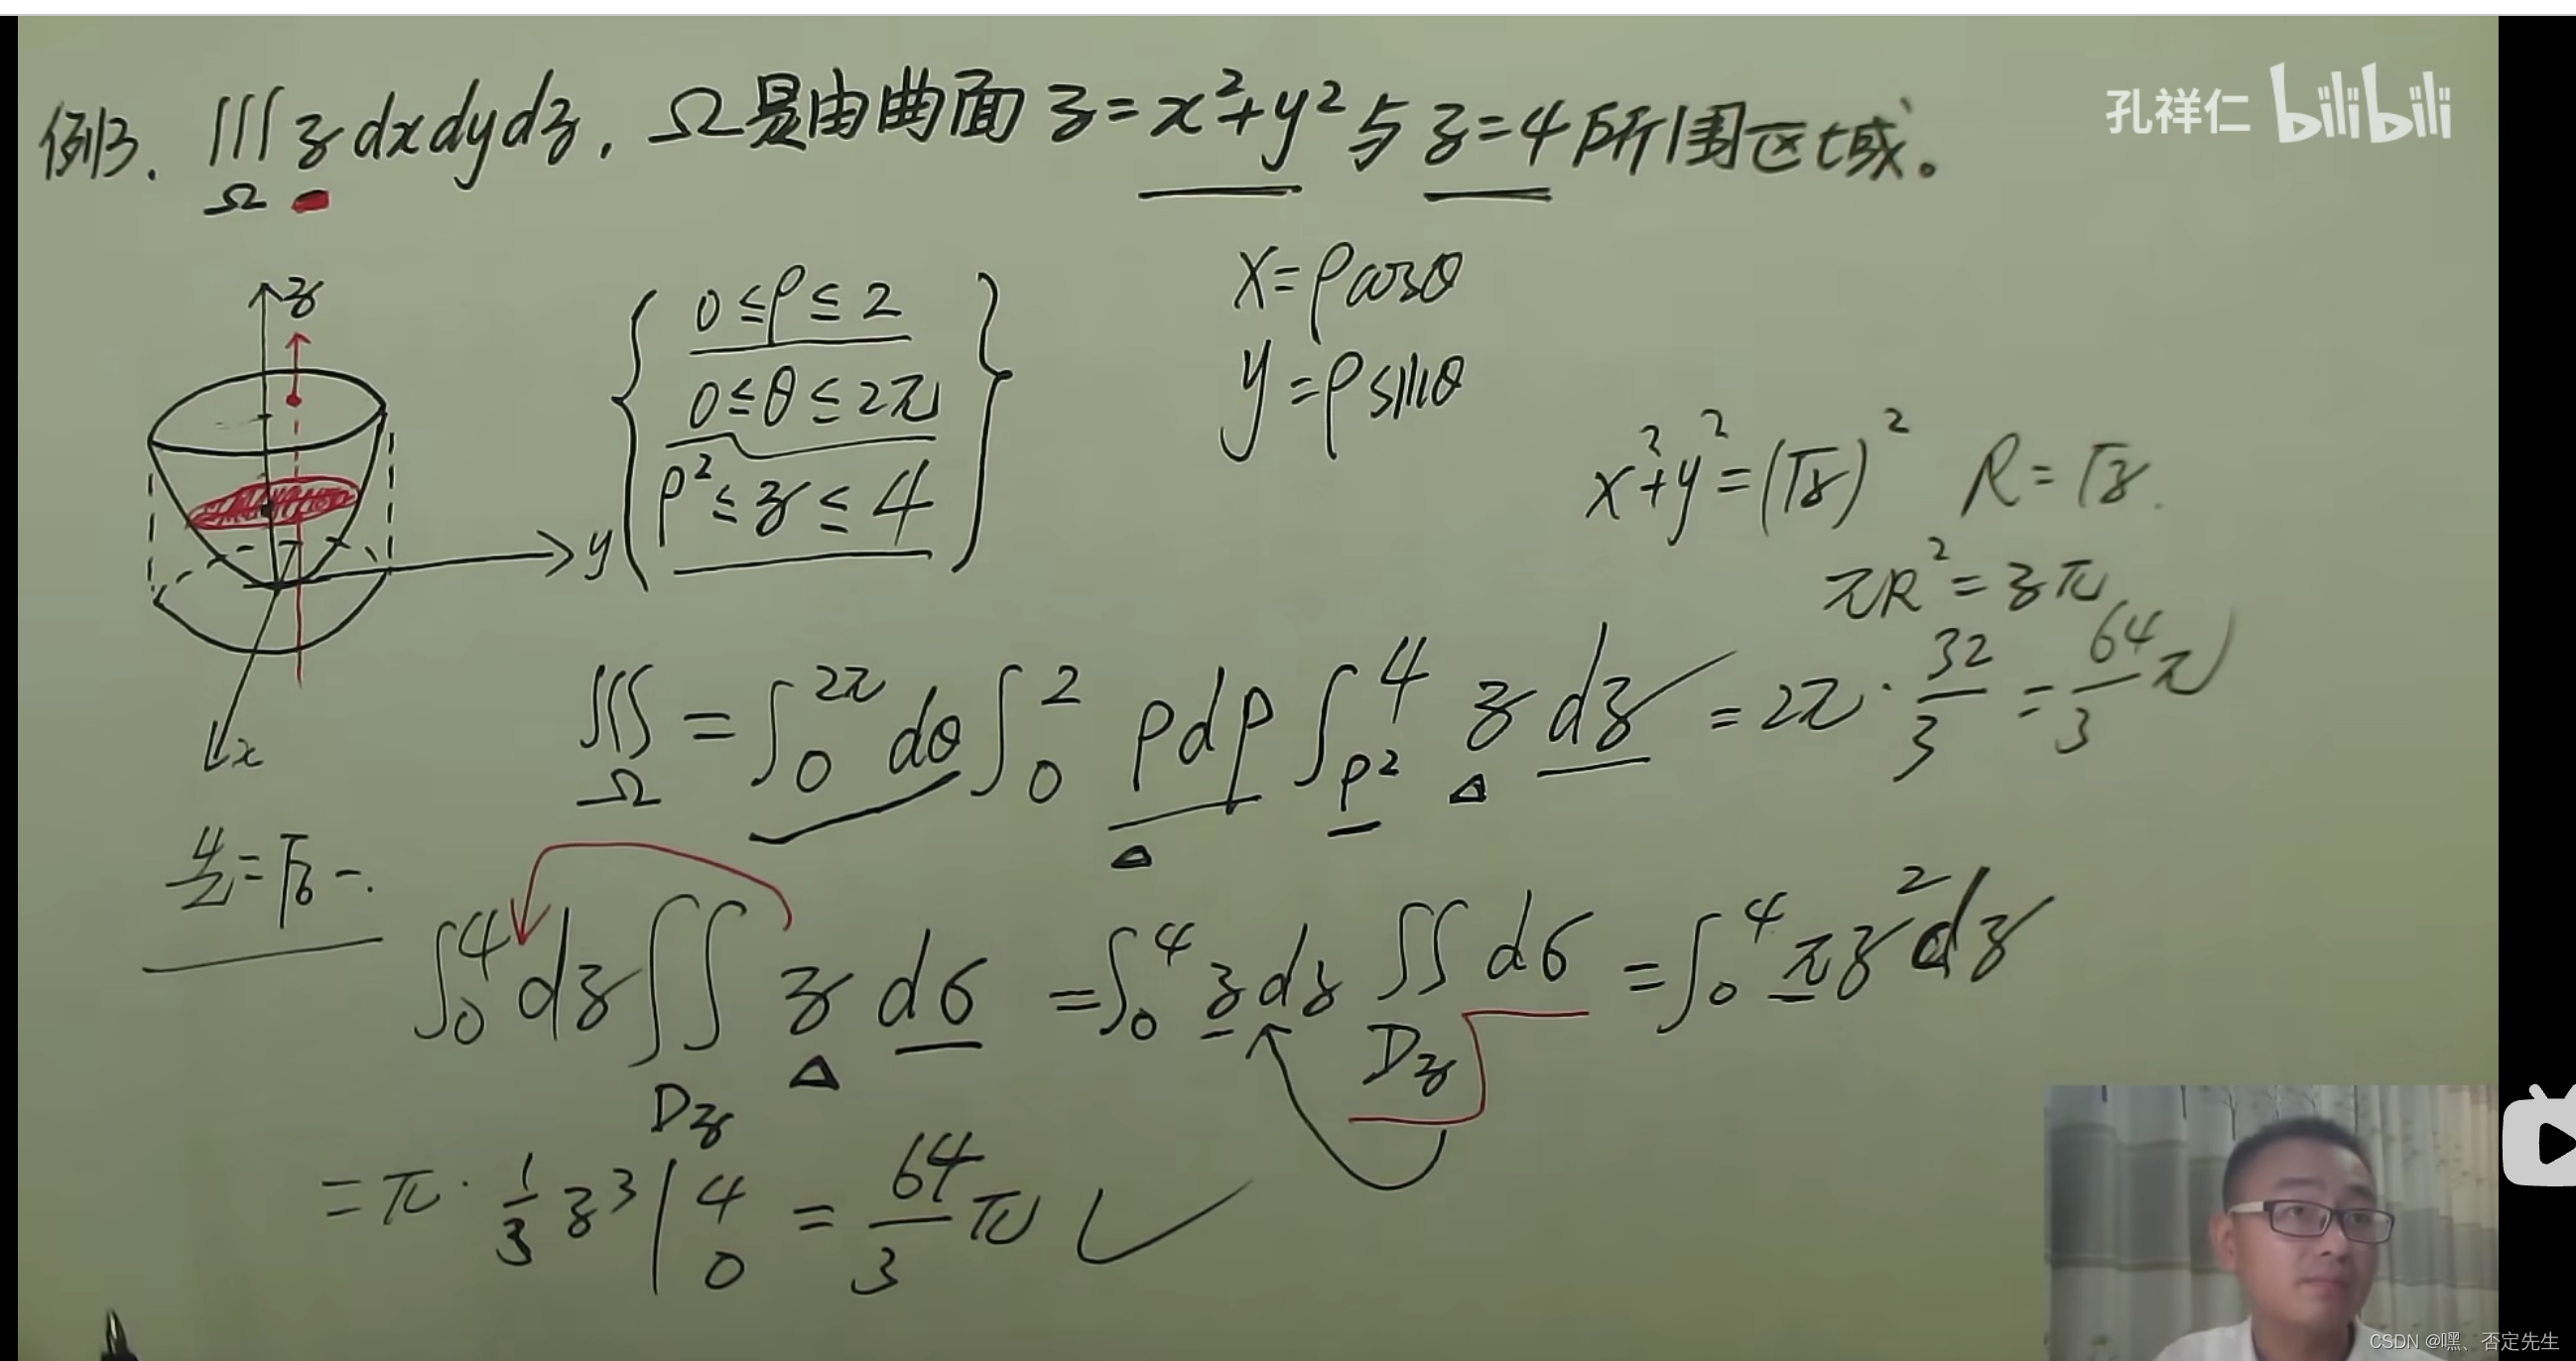 例3. ∭_Ω z dxdydz, Ω是由曲面 z=x²+y² 与 z=4 所围区域。
孔祥仁 bilibili
z
y
x
0≤ρ≤2
0≤θ≤2π
ρ²≤z≤4
x=ρcosθ
y=ρsinθ
x²+y²=(√z)² R=√z.
πR²=zπ
∭_Ω = ∫₀^{2π} dθ ∫₀² ρdρ ∫_{ρ²}⁴ z dz = 2π·32/3 = 64/3 π
先二后一.
∫₀⁴ dz ∬_{Dz} z dσ = ∫₀⁴ z dz ∬_{Dz} dσ = ∫₀⁴ πz² dz
= π·1/3 z³ |₀⁴ = 64/3 π
CSDN @嘿、否定先生